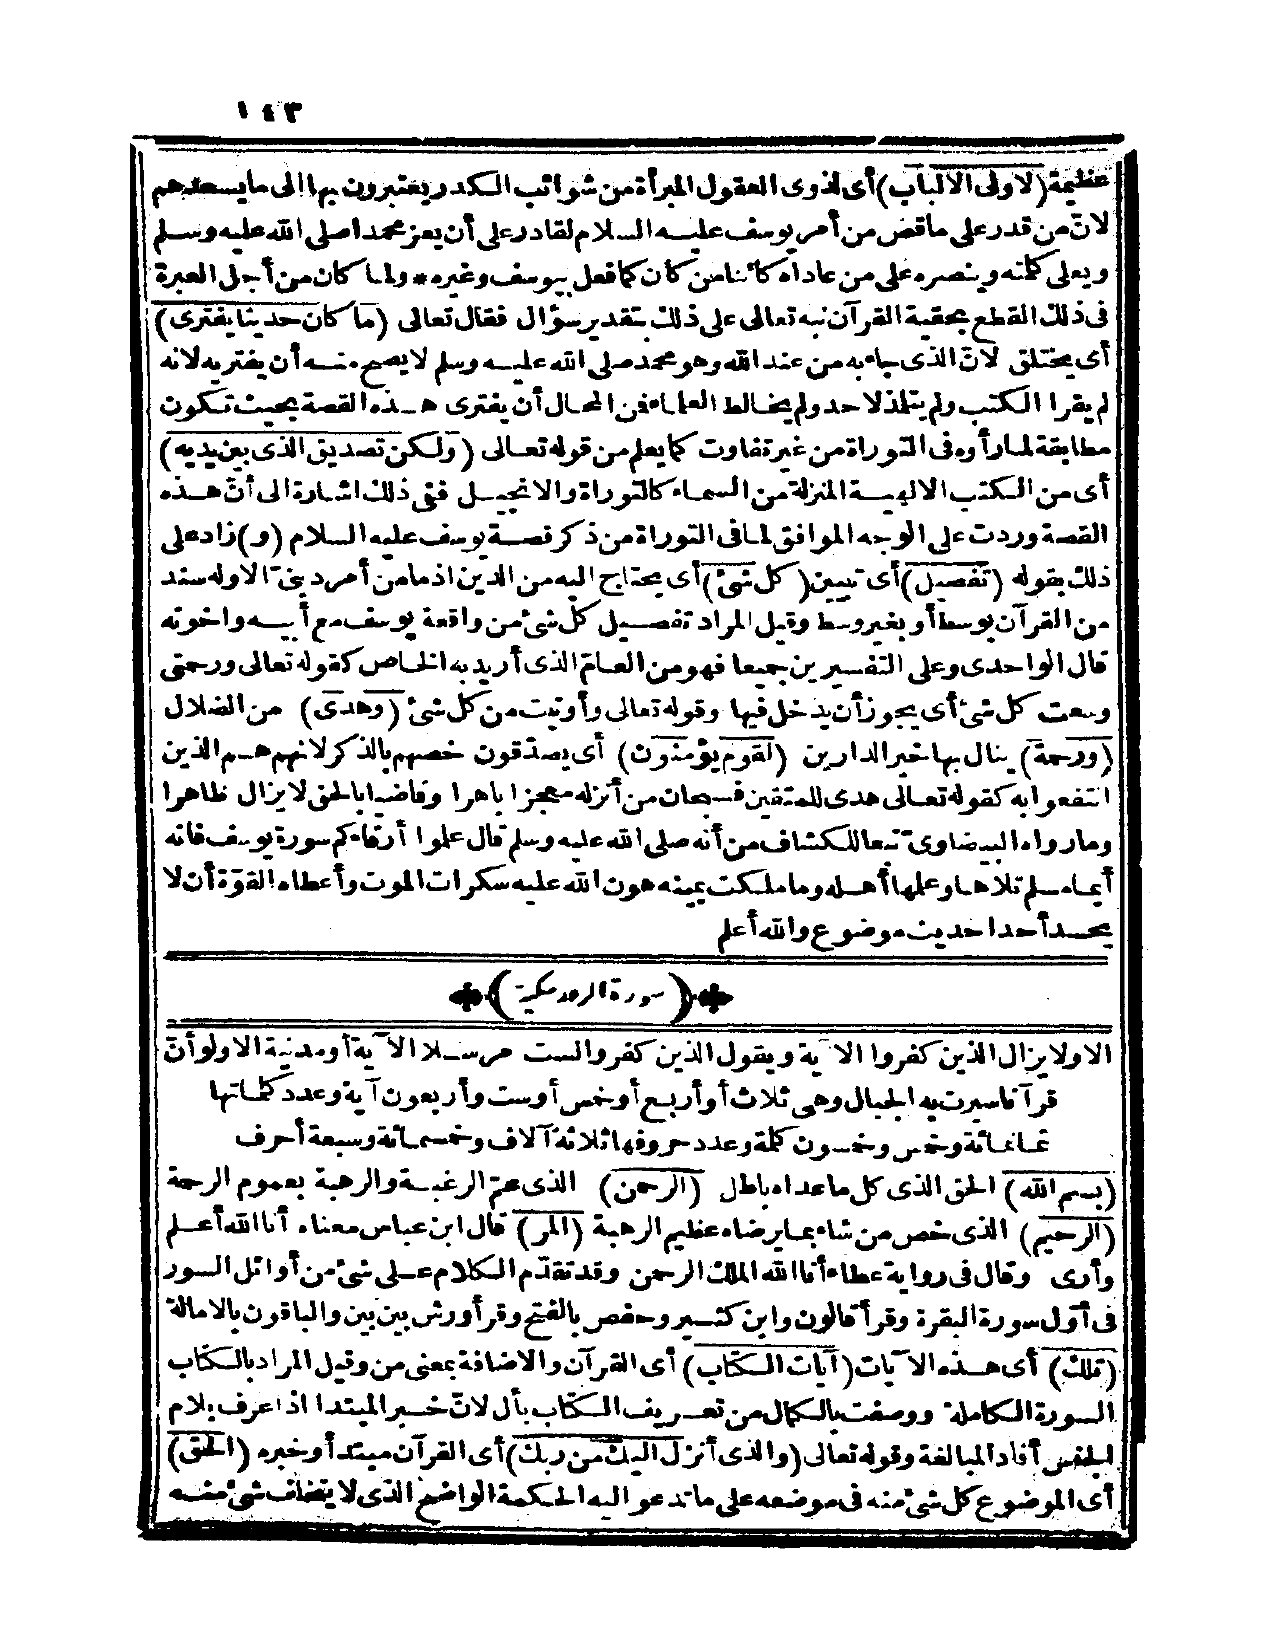 ١٤٣
عظيمة (لاولى الالباب) أى لذوى العقول المبرأة من شوائب الكدر يعتبرون بها الى ما يسعدهم
لان من قدر على ما قص من أمر يوسف عليه السلام لقادر على أن يعز محمدا صلى الله عليه وسلم
ويعلى كلمته وينصره على من عاداه كائنا من كان كما فعل بيوسف وغيره * ولما كان من أجل العبرة
فى ذلك القطع بحقية القرآن نبه تعالى على ذلك بتقدير سؤال فقال تعالى (ما كان حديثا يفترى)
أى يختلق لانّ الذى جاء به من عند الله وهو محمد صلى الله عليه وسلم لا يصح منه أن يفتريه لانه
لم يقرا الكتب ولم يتلمذ لاحد ولم يخالط العلماء فن المحال أن يفترى هذه القصة بحيث تكون
مطابقة لما رأوه فى التوراة من غير تفاوت كما يعلم من قوله تعالى (ولكن تصديق الذى بين يديه)
أى من الكتب الالهية المنزلة من السماء كالتوراة والانجيل فنى ذلك اشارة الى أنّ هذه
القصة وردت على الوجه الموافق لما فى التوراة من ذكر قصة يوسف عليه السلام (و) زاد على
ذلك بقوله (تفصيل) أى تبيين (كل شئ) أى يحتاج اليه من الدين اذ ما من أمر دينىّ الا وله سند
من القرآن بوسط أو بغير وسط وقيل المراد تفصيل كل شئ من واقعة يوسف مع أبيه واخوته
قال الواحدى وعلى التفسيرين جميعا فهو من العام الذى أريد به الخاص كقوله تعالى ورحمتى
وسعت كل شئ أى يجوز أن يدخل فيها وقوله تعالى وأوتيت من كل شئ (وهدى) من الضلال
(ورحمة) ينال بها خير الدارين (لقوم يؤمنون) أى يصدّقون خصهم بالذكر لانهم هم الذين
انتفعوا به كقوله تعالى هدى للمتقين فسبحان من أنزله معجزا باهرا وقاضيا بالحق لا يزال ظاهرا
وما رواه البيضاوىّ تبعا للكشاف من أنه صلى الله عليه وسلم قال علموا أرقاءكم سورة يوسف فانه
أيما مسلم تلاها وعلمها أهله وما ملكت يمينه هون الله عليه سكرات الموت وأعطاه القوّة أن لا
يحسد أحدا حديث موضوع والله أعلم
(سورة الرعد مكية)
الا ولا يزال الذين كفروا الآية ويقول الذين كفروا لست مرسلا الآية أو مدنية الا ولو أنّ
قرآنا سيرت به الجبال وهى ثلاث أو أربع أو خمس أو ست وأربعون آية وعدد كلماتها
ثمانمائة وخمس وخمسون كلمة وعدد حروفها ثلاثة آلاف وخمسمائة وسبعة أحرف
(بسم الله) الحق الذى كل ما عداه باطل (الرحمن) الذى عمّ الرغبة والرهبة بعموم الرحمة
(الرحيم) الذى خص من شاء بما يرضاه عظيم الرهبة (المر) قال ابن عباس معناه أنا الله أعلم
وأرى وقال فى رواية عطاء أنا الله الملك الرحمن وقد تقدّم الكلام على شئ من أوائل السور
فى أوّل سورة البقرة وقرأ قالون وابن كثير وحفص بالفتح وقرأ ورش بين بين والباقون بالامالة
(تلك) أى هذه الآيات (آيات الكتاب) أى القرآن والاضافة بمعنى من وقيل المراد بالكتاب
السورة الكاملة ووصفت بالكمال من تعريف الكتاب بأل لانّ خبر المبتدا اذا عرف بلام
الجنس أفاد المبالغة وقوله تعالى (والذى أنزل اليك من ربك) أى القرآن مبتدأ وخبره (الحق)
أى الموضوع كل شئ منه فى موضعه على ما تدعو اليه الحكمة الواضح الذى لا يتخلف شئ منه